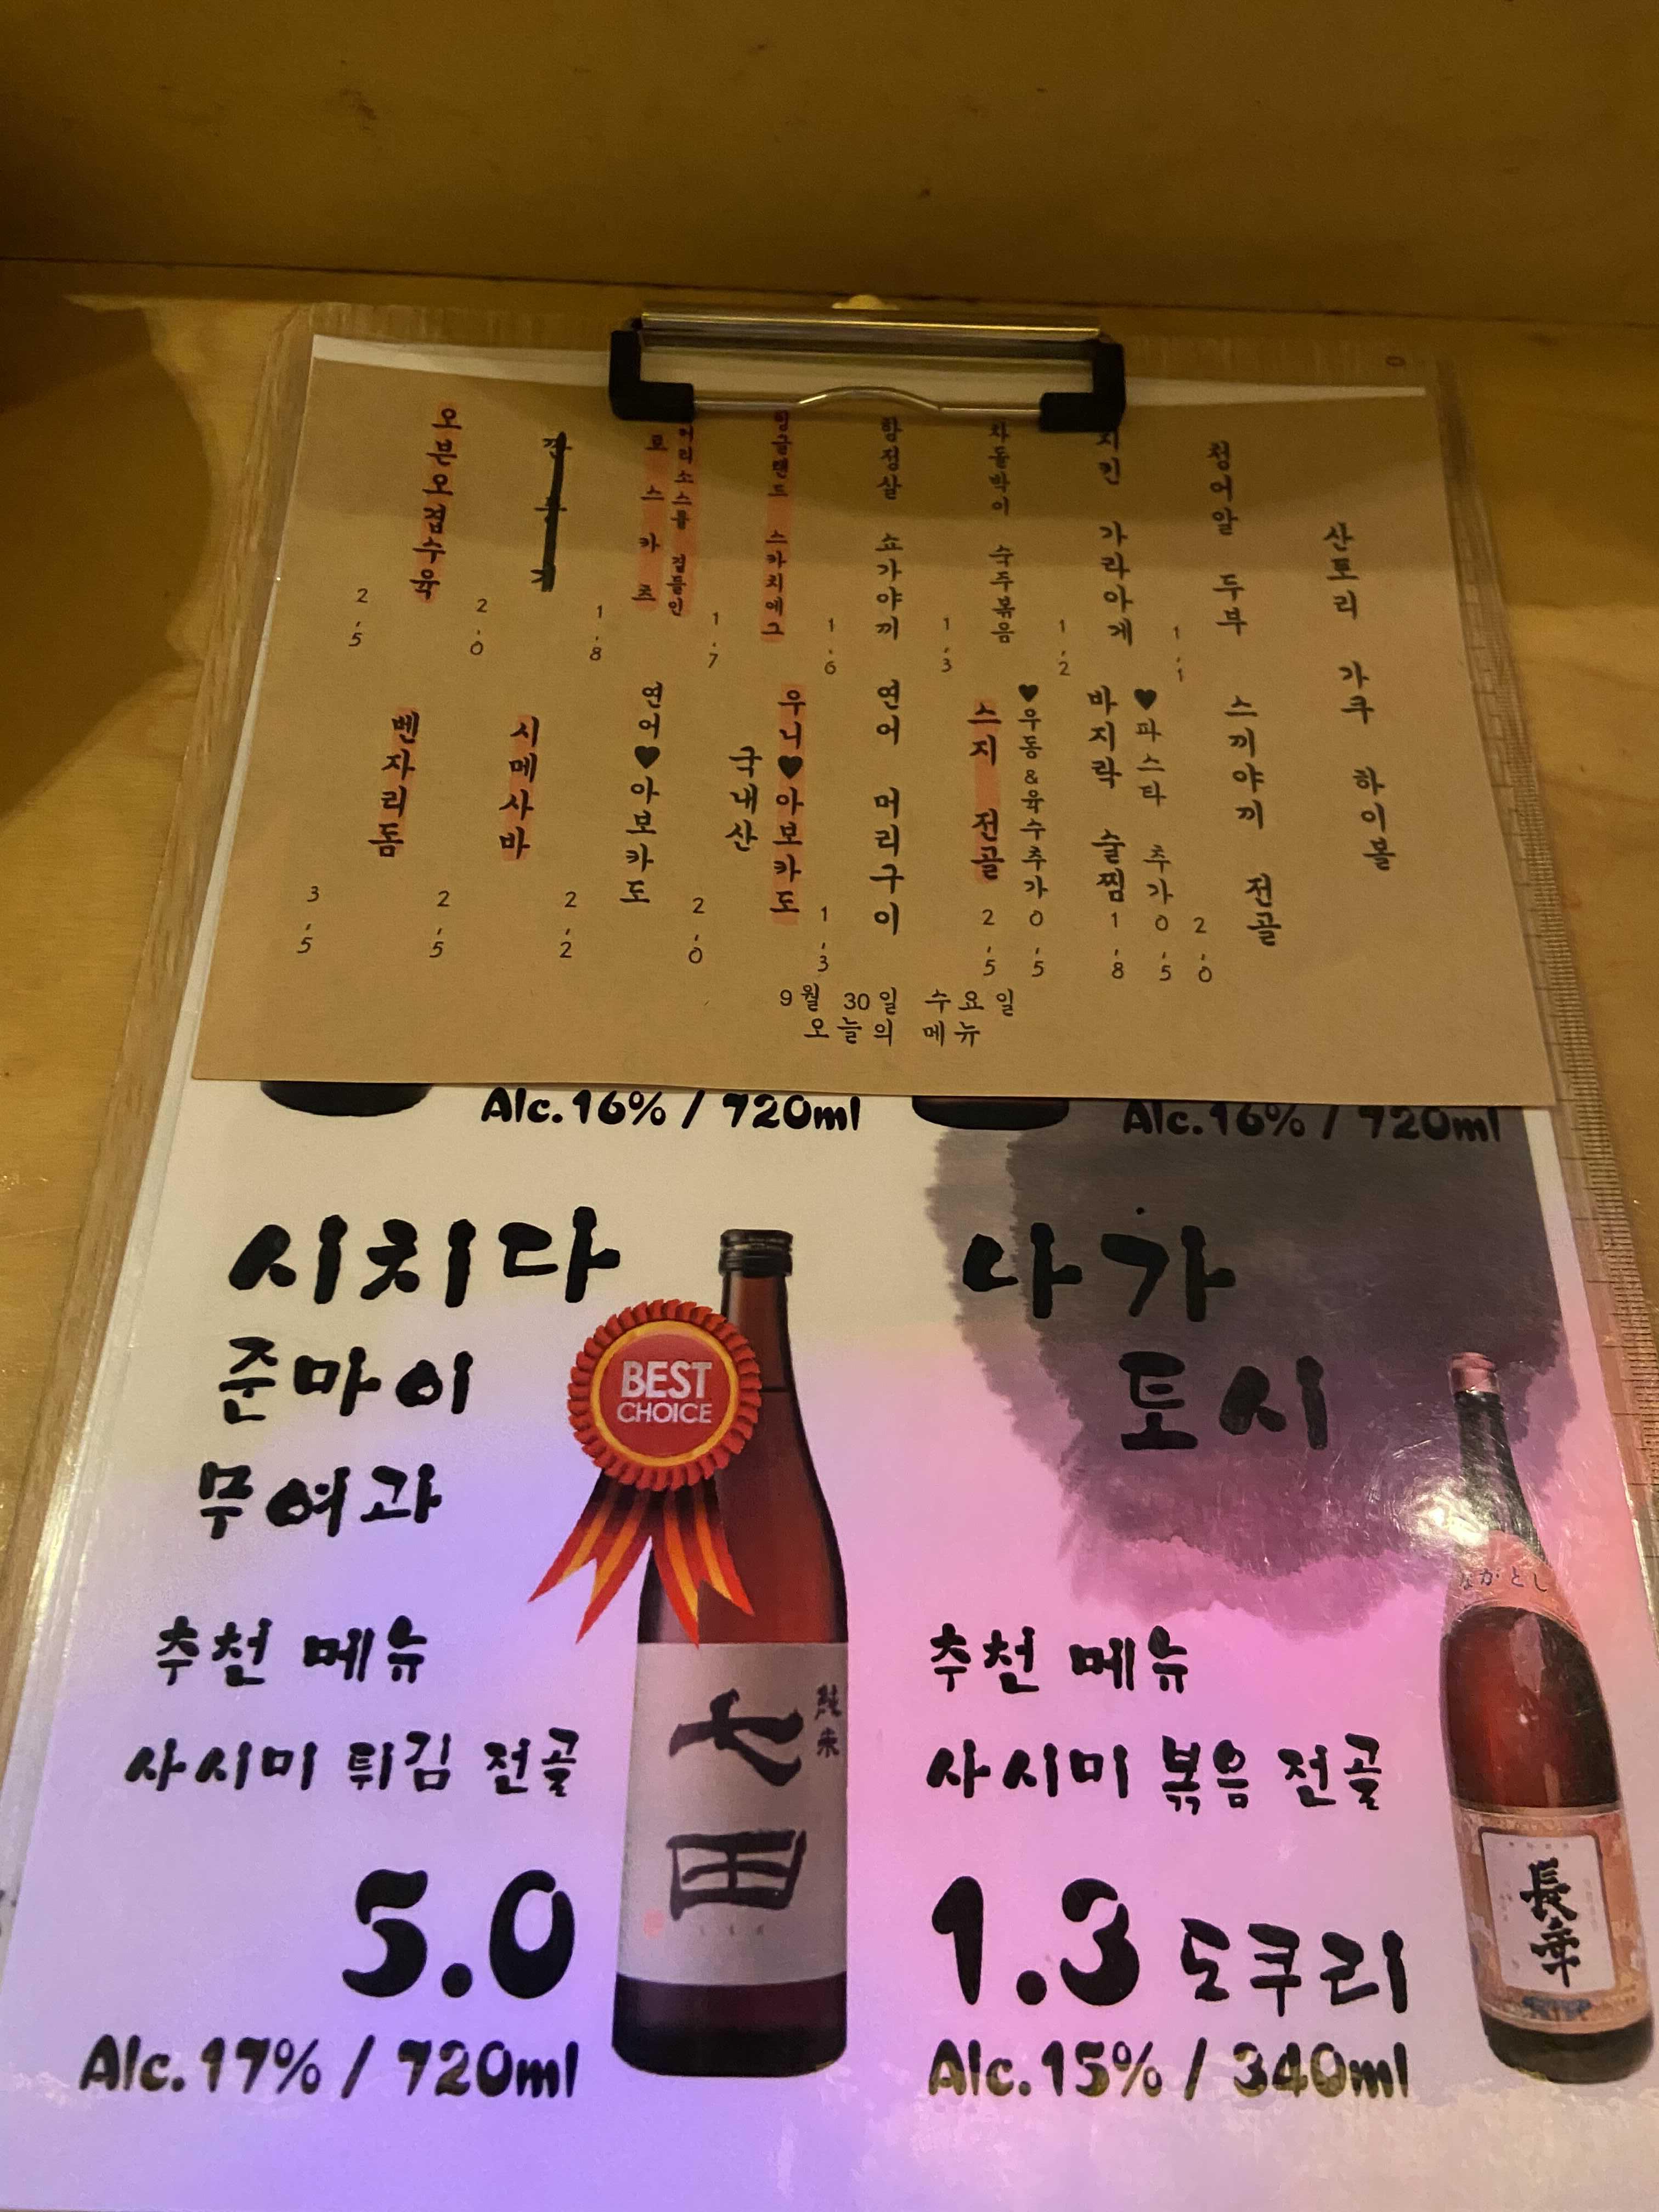 산토리 가쿠 하이볼
청어알 두부
1.1
치킨 가라아게
1.2
차돌박이 숙주볶음
1.3
항정살 쇼가야끼
1.6
잉글랜드 스카치에그
1.7
소스를 곁들인
로스카츠
1.8
2.0
오분오겹수육
2.5
스끼야끼 전골
2.0
♥파스타 추가 0.5
바지락 술찜
1.8
♥우동&육수추가 0.5
스지 전골
2.5
연어 머리구이
1.3
우니♥아보카도
국내산
2.0
연어♥아보카도
2.2
시메사바
2.5
벤자리돔
3.5
9월 30일 수요일
오늘의 메뉴
Alc.16% / 720ml
Alc.16% / 720ml
시치다
준마이
무여과
BEST
CHOICE
純米
七田
추천 메뉴
사시미 튀김 전골
5.0
Alc.17% / 720ml
나가
토시
ながとし
長幸
추천 메뉴
사시미 볶음 전골
1.3 도쿠리
Alc.15% / 340ml